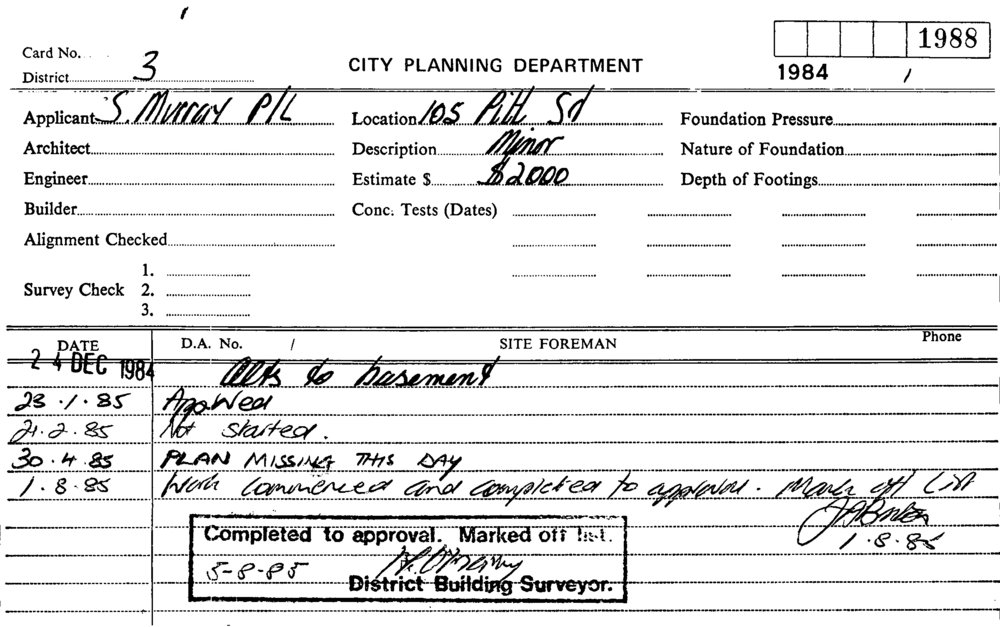 Card No.
1988
District 3
CITY PLANNING DEPARTMENT
1984 /
Applicant S. Murray P/L
Location 105 Pitt St
Foundation Pressure
Architect
Description Minor
Nature of Foundation
Engineer
Estimate $ $2000
Depth of Footings
Builder
Conc. Tests (Dates)
Alignment Checked
1.
Survey Check 2.
3.
DATE D.A. No. / SITE FOREMAN Phone
24 DEC 1984 Alts to basement
23.1.85 Approved
21.2.85 Not started.
30.4.85 PLAN MISSING THIS DAY
1.8.85 Work commenced and completed to approval. Mark off List
1.8.85
Completed to approval. Marked off list.
5-8-85
District Building Surveyor.